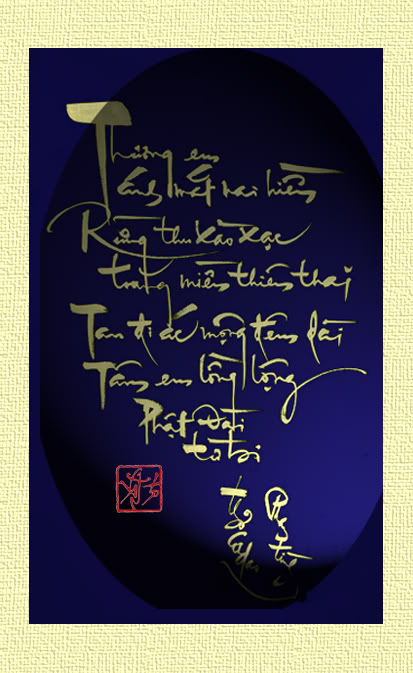 Thương em
ánh mắt nai hiền
Rừng thu xào xạc
trong miền thiên thai
Tan đi ác mộng đêm dài
Tâm em lồng lộng
Phật Đài
từ bi